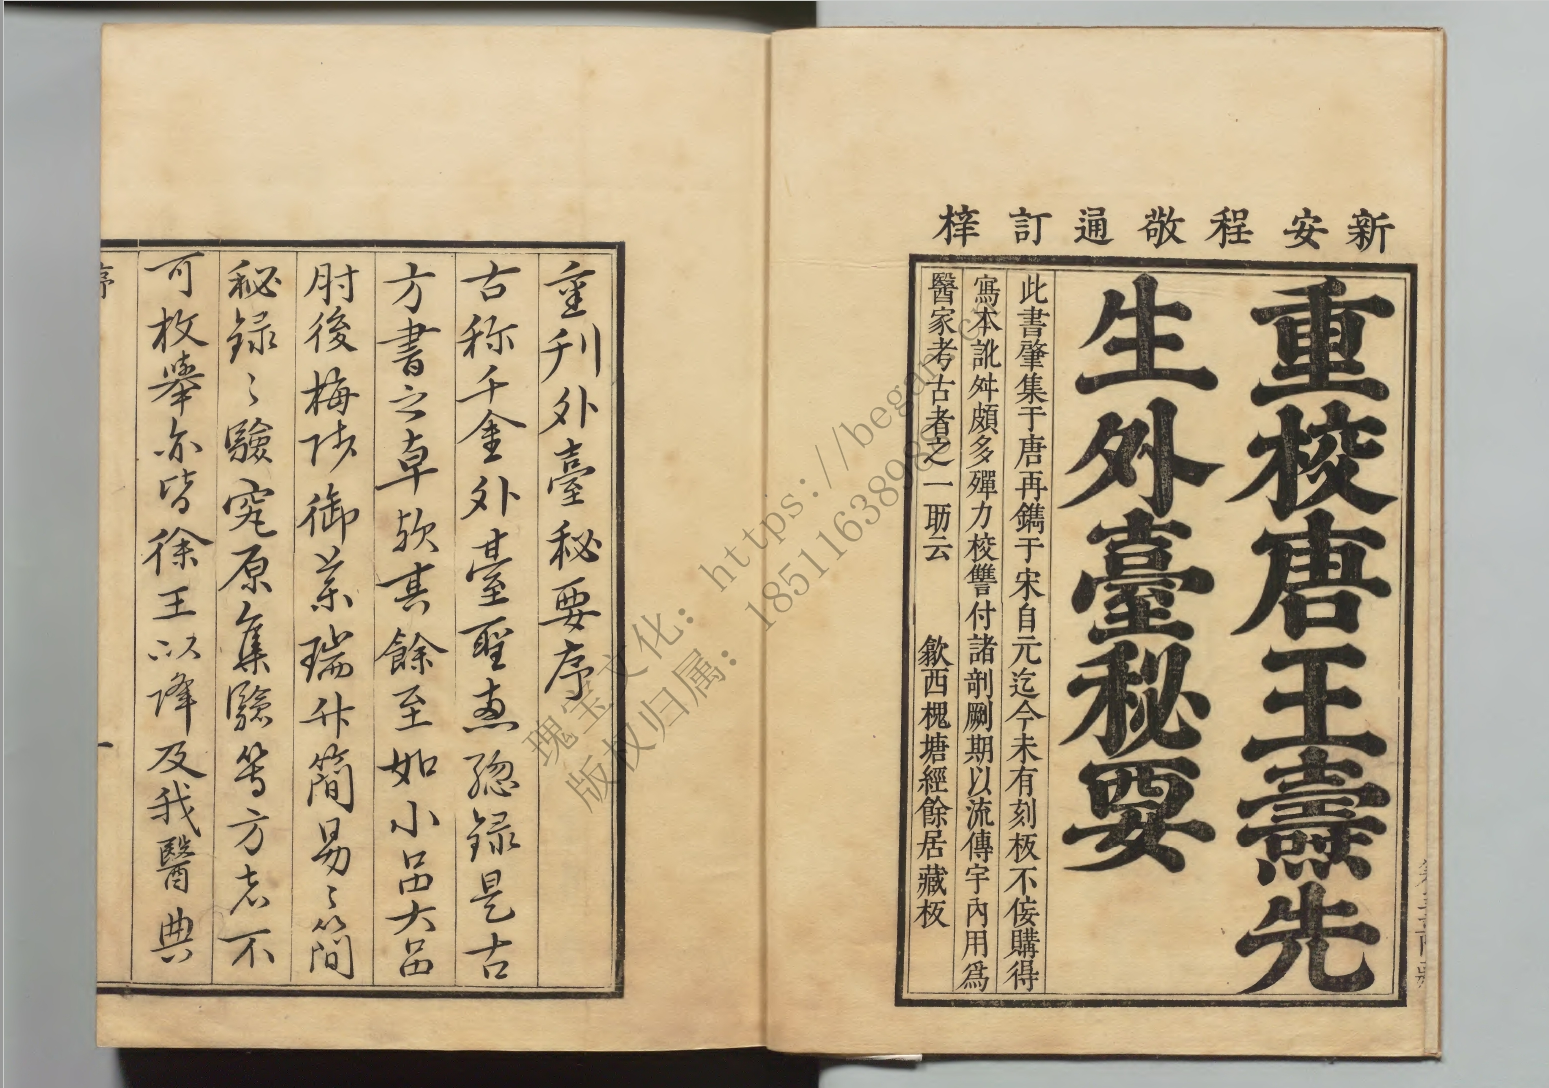 新安程敬通訂梓
重校唐王燾先
生外臺秘要
此書肇集于唐再鐫于宋自元迄今未有刻板不侫購得
寫本訛舛頗多殫力校讐付諸剞劂期以流傳宇內用爲
醫家考古者之一助云　歙西槐塘經餘居藏板
重刋外臺秘要序
古称千金外臺聖惠總録是古
方書之卓欤其餘至如小品大品
肘後梅师御药瑞竹簡易〻簡
秘録〻驗究原集驗等方志不
可枚舉亦皆徐王以降及我醫典
序
一
瑰宝文化：https://began
版权归属：1851163898